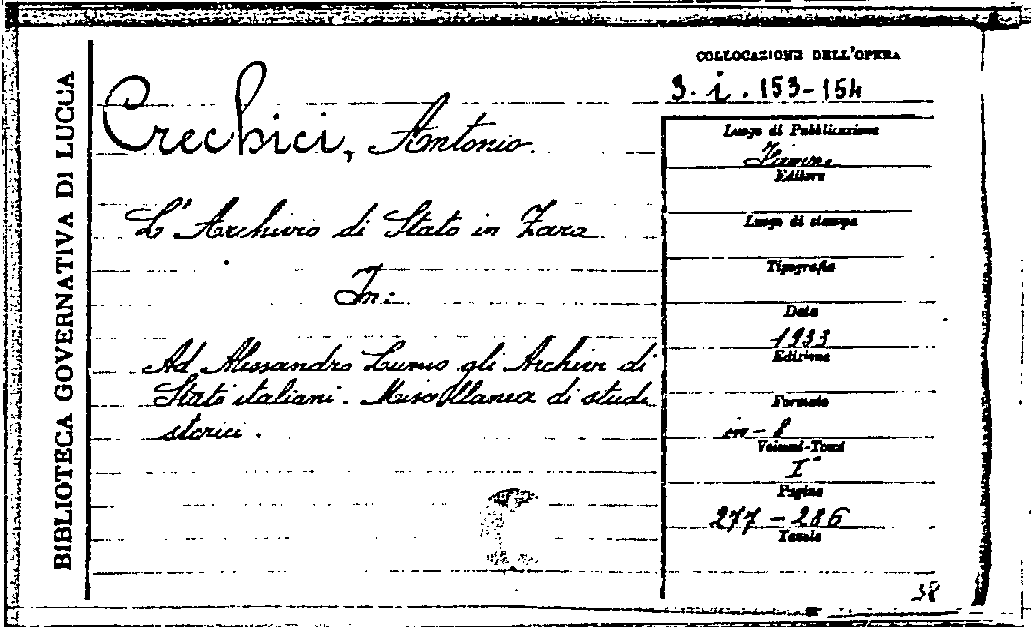 BIBLIOTECA GOVERNATIVA DI LUCCA
COLLOCAZIONE DELL'OPERA
3. i. 153-154
Crechici, Antonio.
L'Archivio di Stato in Zara
In:
Ad Alessandro Luzio gli Archivi di
Stato italiani. Miscellanea di studi
storici.
Luogo di Pubblicazione
Firenze
Editore
Luogo di stampa
Tipografia
Data
1933
Edizione
Formato
in-8
Volumi-Tomi
I°
Pagine
277-286
Tavole
38